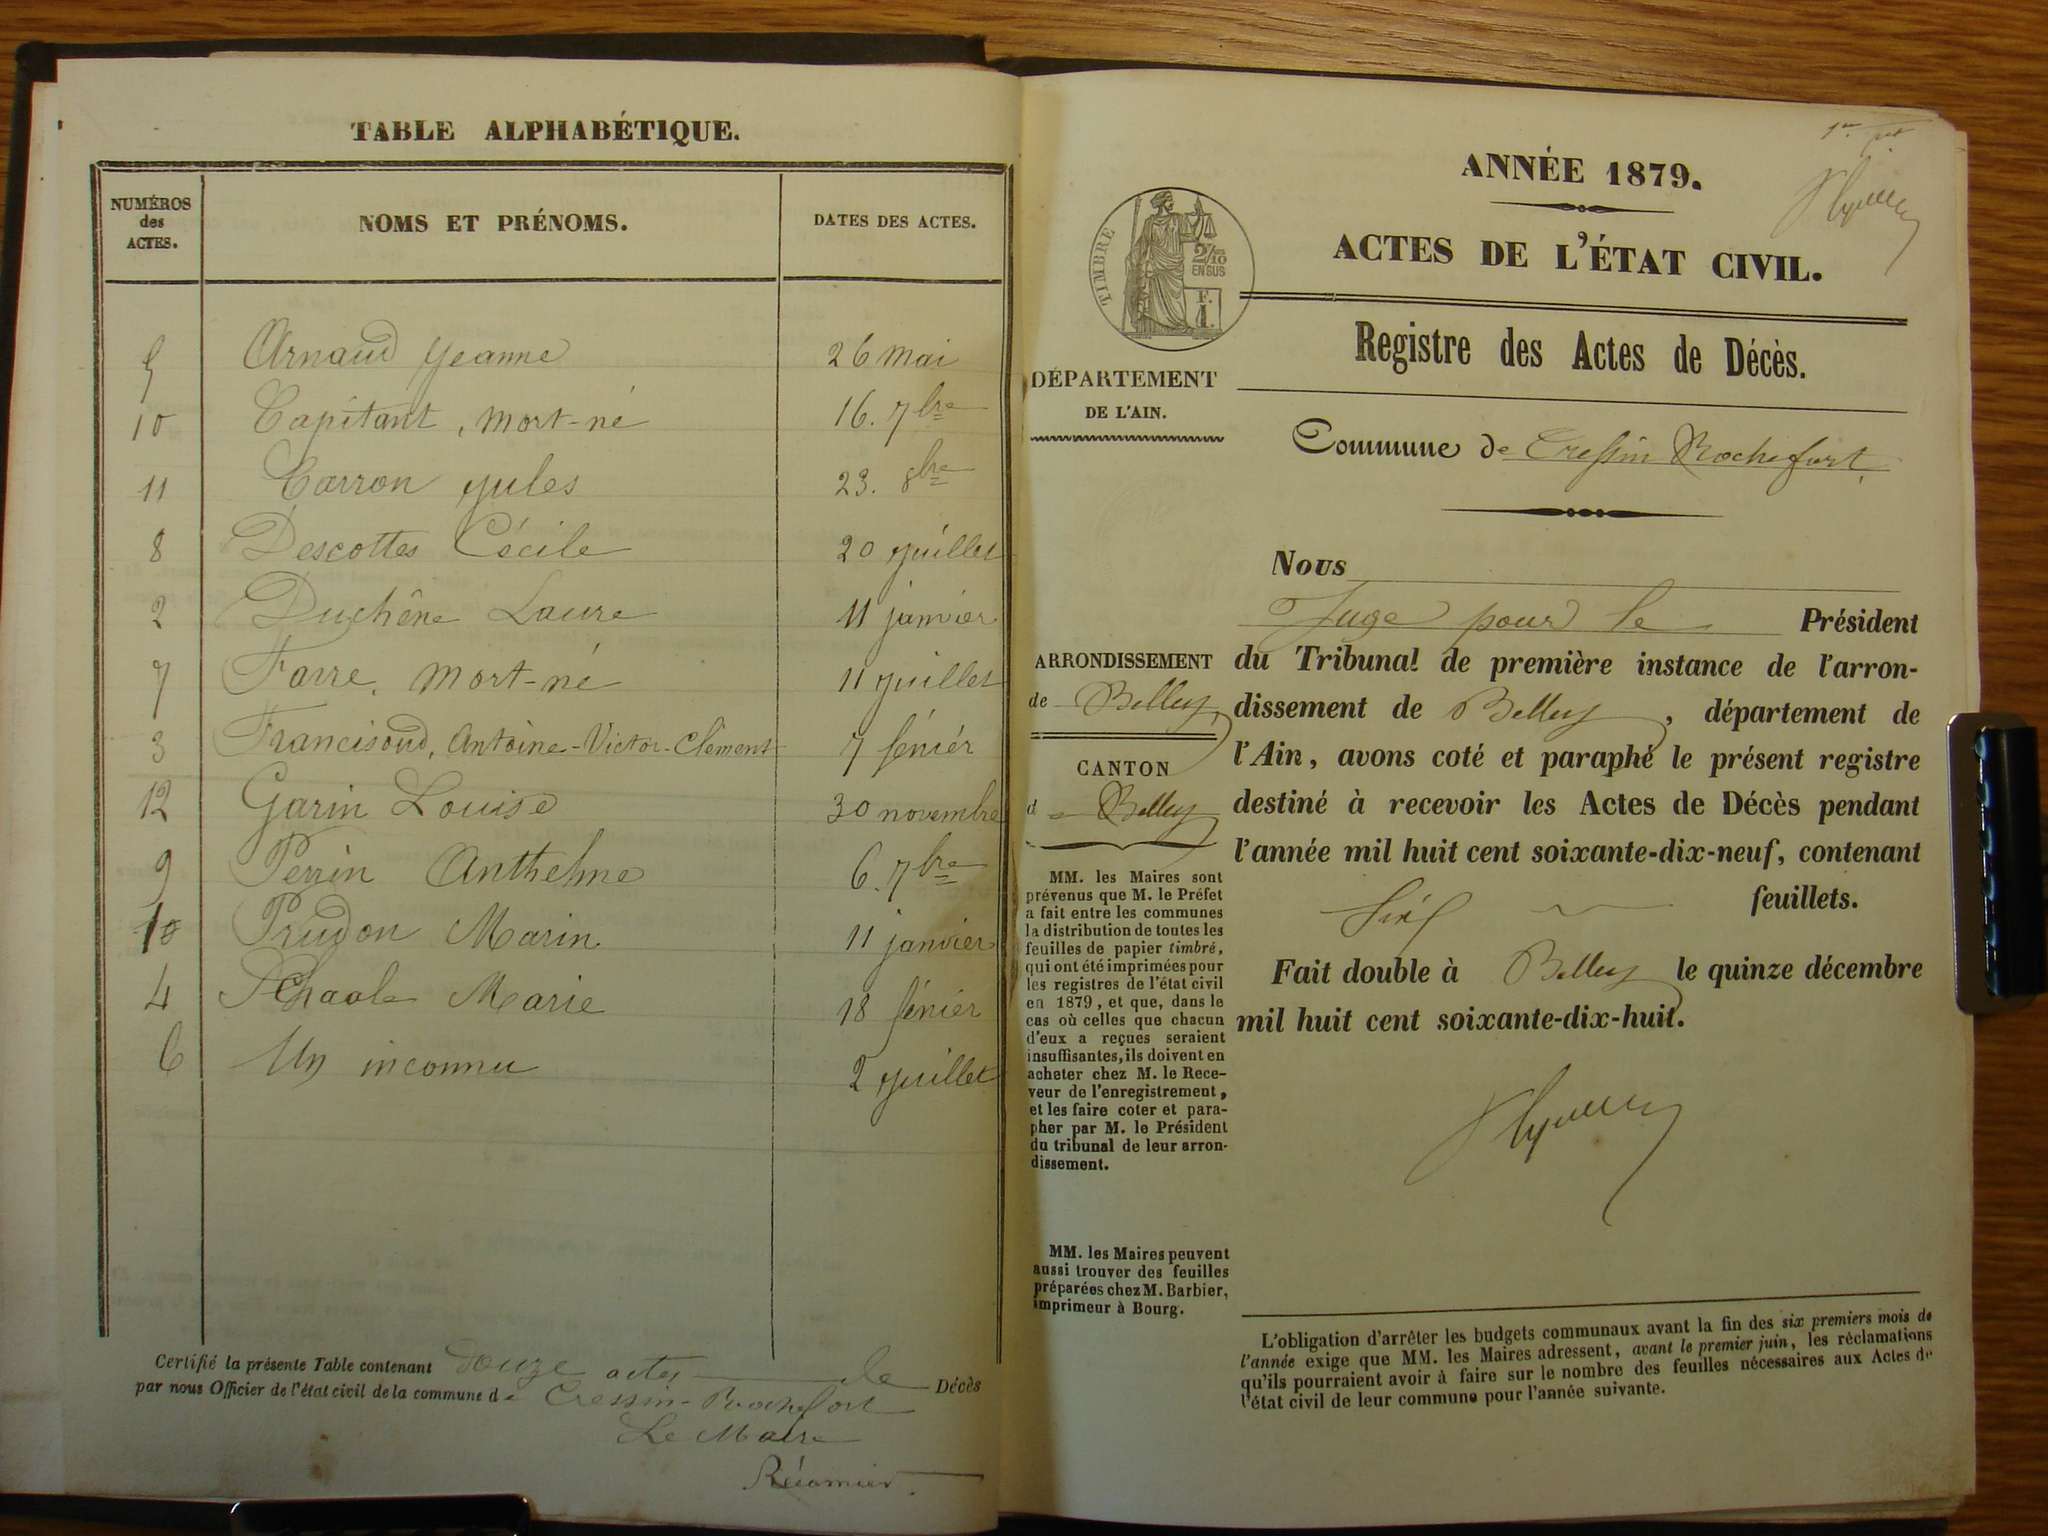 TABLE ALPHABÉTIQUE.
NUMÉROS des ACTES. NOMS ET PRÉNOMS. DATES DES ACTES.
5 Arnaud Jeanne 26 Mai
10 Capitant, Mort-né 16. 7bre
11 Carron Jules 23. 8bre
8 Descottes Cécile 20 Juillet
2 Duchêne Laure 11 janvier
7 Farre, Mort-né 11 Juillet
3 Francisoud, Antoine-Victor-Clément 7 février
12 Garin Louise 30 novembre
9 Perrin Anthelme 6. 7bre
1 Prudon Marin 11 janvier
4 Marie 18 février
6 Un inconnu 2 Juillet
Certifié la présente Table contenant douze actes de Décès
par nous Officier de l'état civil de la commune de Cressin-Rochefort
Le Maire
Récamier.
ANNÉE 1879.
ACTES DE L'ÉTAT CIVIL.
TIMBRE
2/10
EN SUS
F.
1.
Registre des Actes de Décès.
DÉPARTEMENT
DE L'AIN.
Commune de Cressin Rochefort
Nous
Juge pour le Président
du Tribunal de première instance de l'arron-
dissement de Belley, département de
l'Ain, avons coté et paraphé le présent registre
destiné à recevoir les Actes de Décès pendant
l'année mil huit cent soixante-dix-neuf, contenant
feuillets.
Fait double à Belley le quinze décembre
mil huit cent soixante-dix-huit.
ARRONDISSEMENT
de Belley,
CANTON
d Belley
MM. les Maires sont
prévenus que M. le Préfet
a fait entre les communes
la distribution de toutes les
feuilles de papier timbré,
qui ont été imprimées pour
les registres de l'état civil
en 1879, et que, dans le
cas où celles que chacun
d'eux a reçues seraient
insuffisantes, ils doivent en
acheter chez M. le Rece-
veur de l'enregistrement,
et les faire coter et para-
pher par M. le Président
du tribunal de leur arron-
dissement.
MM. les Maires peuvent
aussi trouver des feuilles
préparées chez M. Barbier,
imprimeur à Bourg.
L'obligation d'arrêter les budgets communaux avant la fin des six premiers mois de
l'année exige que MM. les Maires adressent, avant le premier juin, les réclamations
qu'ils pourraient avoir à faire sur le nombre des feuilles nécessaires aux Actes de
l'état civil de leur commune pour l'année suivante.